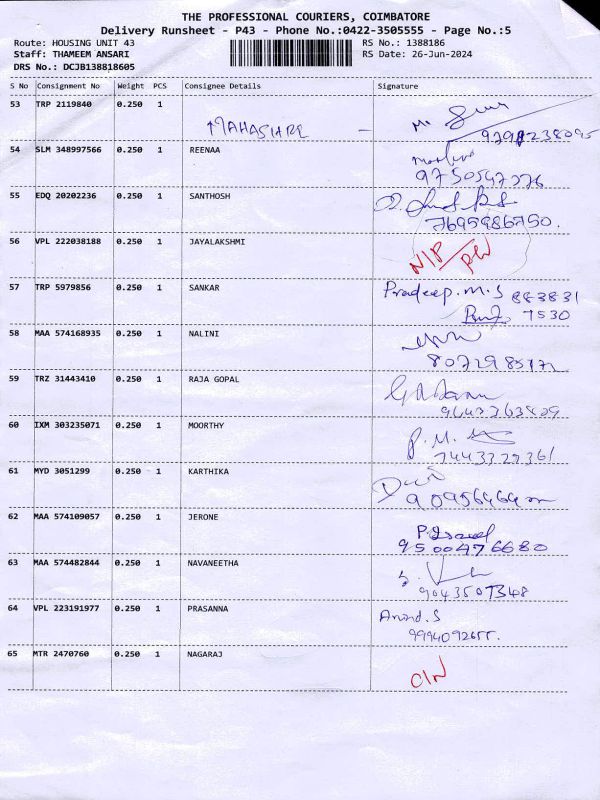 THE PROFESSIONAL COURIERS, COIMBATORE
Delivery Runsheet - P43 - Phone No.:0422-3505555 - Page No.:5
Route: HOUSING UNIT 43 RS No.: 1388186
Staff: THAMEEM ANSARI RS Date: 26-Jun-2024
DRS No.: DCJB138818605
S No Consignment No Weight PCS Consignee Details Signature
53 TRP 2119840 0.250 1
MAHASHREE –
54 SLM 348997566 0.250 1 REENAA
9750547276
55 EDQ 20202236 0.250 1 SANTHOSH
7695986750.
56 VPL 222038188 0.250 1 JAYALAKSHMI
N/P
57 TRP 5979856 0.250 1 SANKAR Pradeep.M.S 883831
7530
58 MAA 574168935 0.250 1 NALINI
59 TRZ 31443410 0.250 1 RAJA GOPAL
60 IXM 303235071 0.250 1 MOORTHY P.M.
7443329361
61 MYD 3051299 0.250 1 KARTHIKA
62 MAA 574109057 0.250 1 JERONE
9500476680
63 MAA 574482844 0.250 1 NAVANEETHA
9043507348
64 VPL 223191977 0.250 1 PRASANNA Anand.S
9994092655.
65 MTR 2470760 0.250 1 NAGARAJ